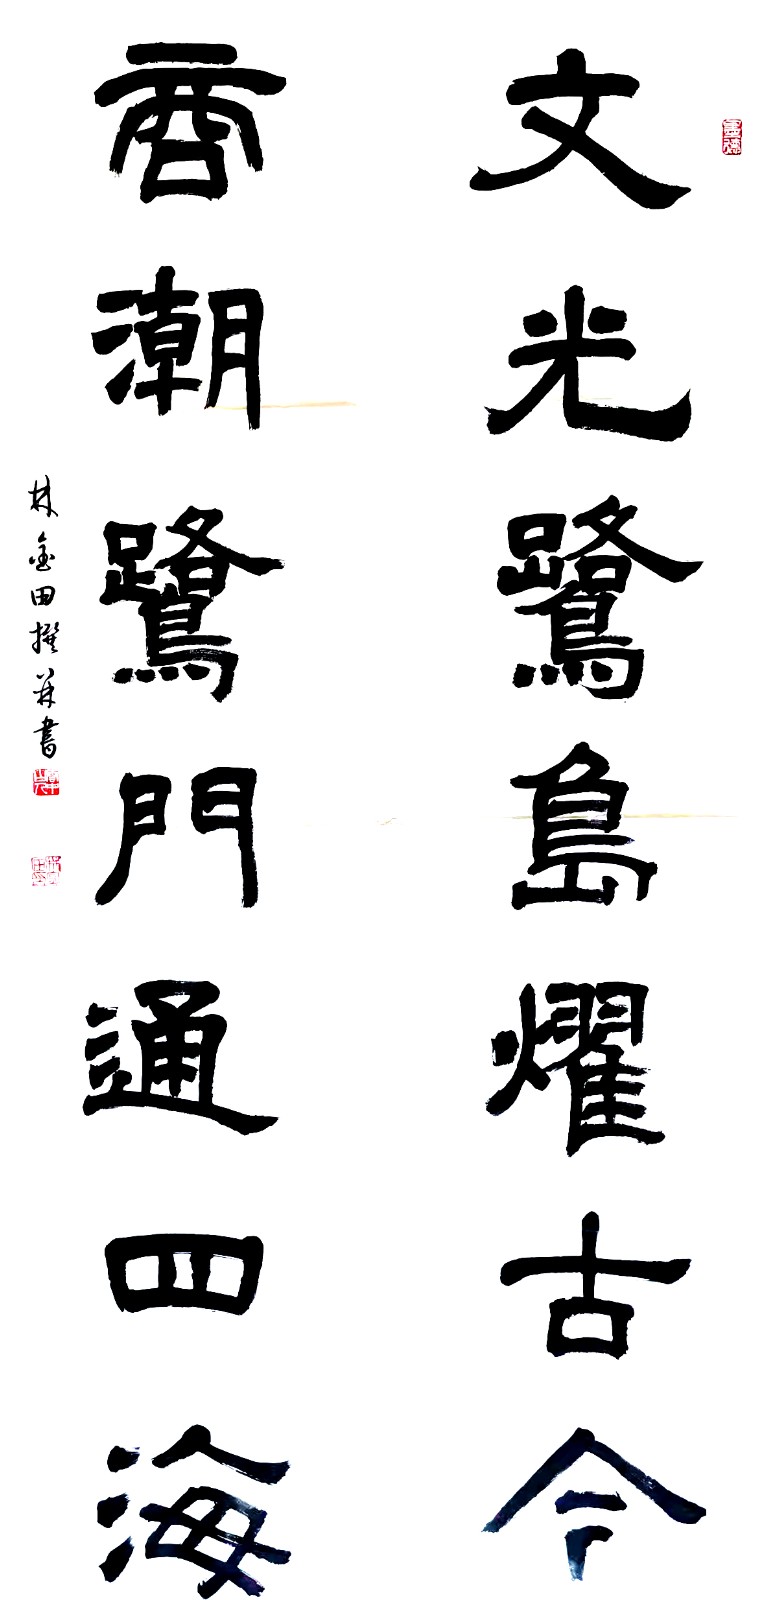 文光鷺島耀古今
商潮鷺門通四海
林金田撰并書